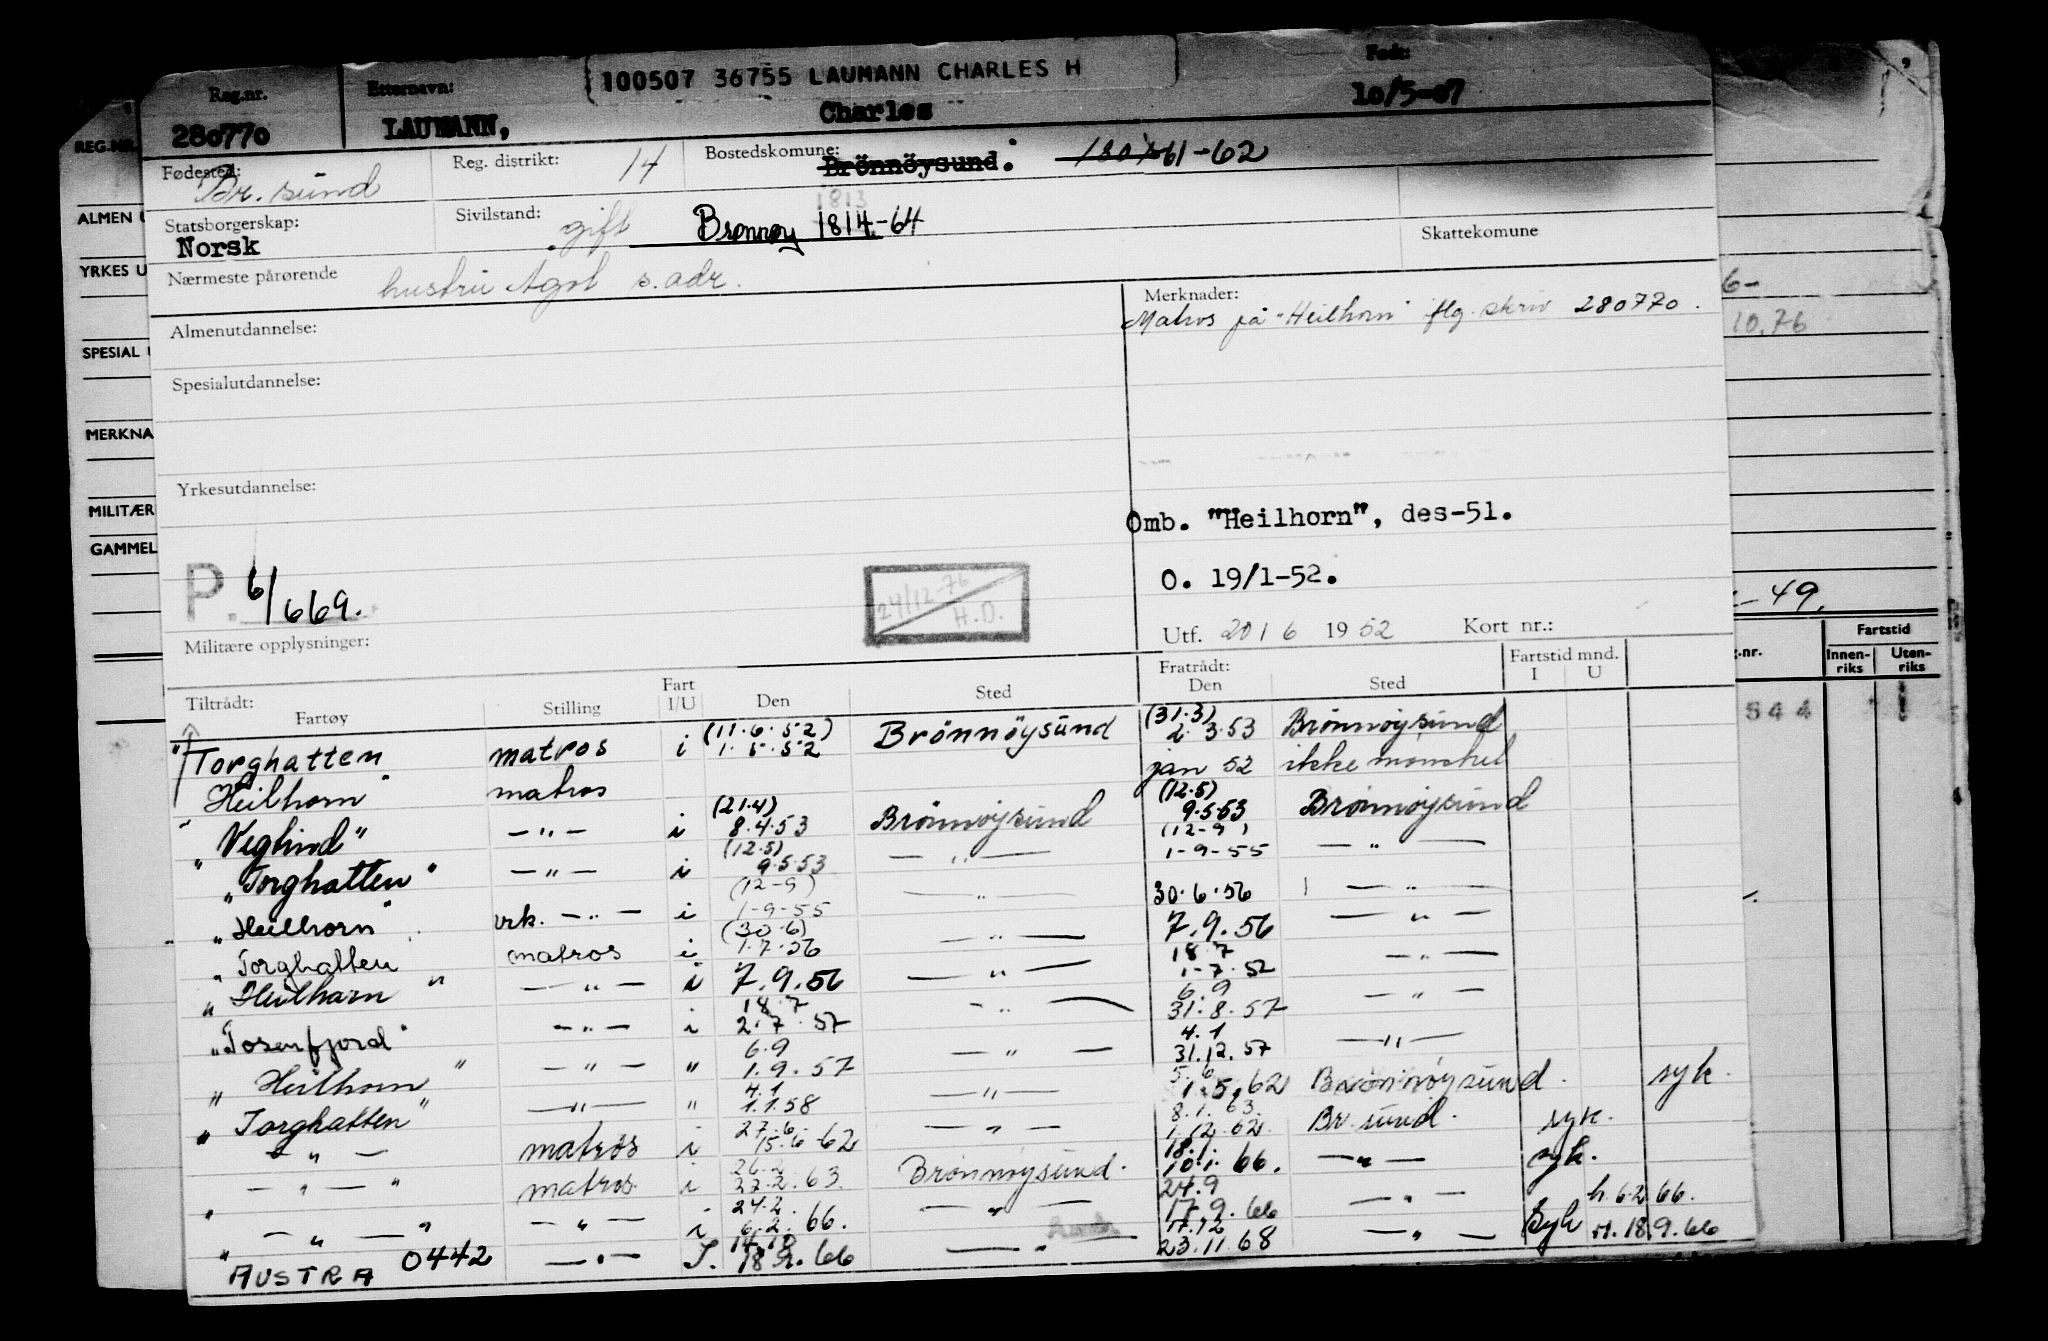 100507 36755 LAUMANN CHARLES H
Reg.nr. Etternavn: Født:
280770 LAUMANN, Charles 10/5-07
Fødested: Reg. distrikt: 14 Bostedskomune: Brönnöysund. 61-62
Br. sund
1813
Statsborgerskap: Sivilstand: gift Brønnøy 1814-64 Skattekomune
Norsk
Nærmeste pårørende hustru Agot s. adr.
Merknader:
Matros på "Heilhorn" flg. skriv 280770.
Almenutdannelse:
Spesialutdannelse:
Yrkesutdannelse:
Omb. "Heilhorn", des-51.
O. 19/1-52.
P. 6/669.
24/12-76 H.O.
Utf. 20/6 1952 Kort nr.:
Militære opplysninger:
Tiltrådt: Fratrådt: Fartstid mnd.
Fartøy Stilling Fart I/U Den Sted Den Sted I U
"Torghatten matros i (11.6.52) 1.5.52 Brönnöysund (31.3) 2.3.53 Brönnöysund
Heilhorn" matros jan 52 ikke mønstret
"Veghind" — " — i (21.4) 8.4.53 Brönnöysund (12.5) 9.5.53 Brönnöysund
"Torghatten" — " — i (12.5) 9.5.53 — " — (12-9) 1-9-55 — " —
"Heilhorn" vrk. — " — i (12-9) 1-9-55 — " — 30.6.56 — " —
"Torghatten matros i (30.6) 1.7.56 — " — 7.9.56 — " —
"Heilhorn" — " — i 7.9.56 — " — 18.7 1-7.52 — " —
"Tosenfjord" — " — i 18.7 2.7.57 — " — 6.9 31.8.57 — " —
"Heilhorn" — " — " 6.9 1.9.57 — " — 4.1 31.12.57 — " —
"Torghatten" — " — " 4.1 1.1.58 — " — 5.6 1.5.62 Brönnöysund. syk.
" — " — matros i 27.6. 15.6.62 — " — 8.1.63. 1.12.62. Br. sund. syk.
" — " — " matros i 22.2.63. Brønnøysund. 18.1. 10.1.66. — " — syk.
" — " — " — " — i 24.2. 6.2.66. — " — 24.9 17.9.66 — " — h. 6.2.66.
"AUSTRA 0442 — " — 18.9.66 — " — 17.12 23.11.68 — " — Syk H. 18.9.66
REG.NR.
ALMEN U
YRKES U
SPESIAL
MERKNA
MILITÆR
GAMMEL
6-
10.76
- 49.
.nr. Fartstid
Innen-riks Uten-riks
844